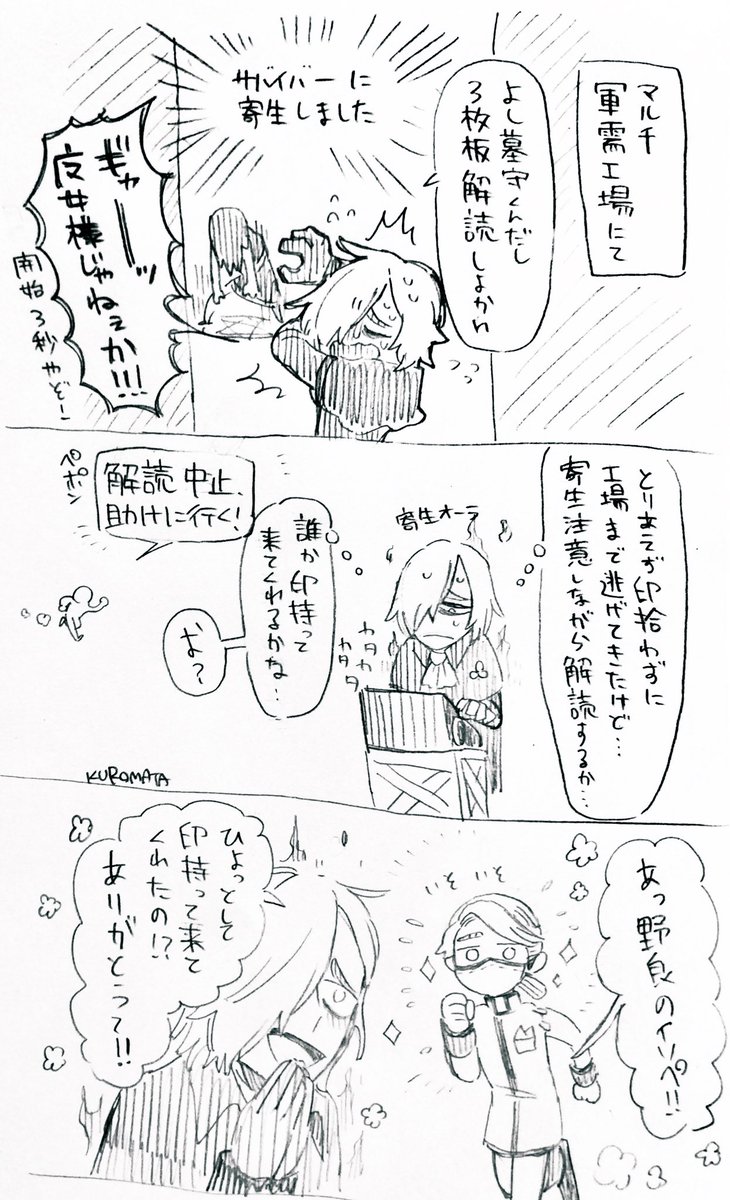 マルチ
軍需工場にて
よし墓守くんだし
3枚板解読しよかね
サバイバーに
寄生しました
ギャーーッ
夜女様じゃねぇか!!!
開始3秒やぞー
とりあえず印拾わずに
工場まで逃げてきたけど…
寄生注意しながら解読するか…
寄生オーラ
カタカタ
カタカタ
誰か印持って
来てくれるかな…
お?
解読中止、
助けに行く!
ペポン
KUROMATA
あっ野良のイソペ!!
いそいそ
ひょっとして
印持って来て
くれたの!?
ありがとって!!